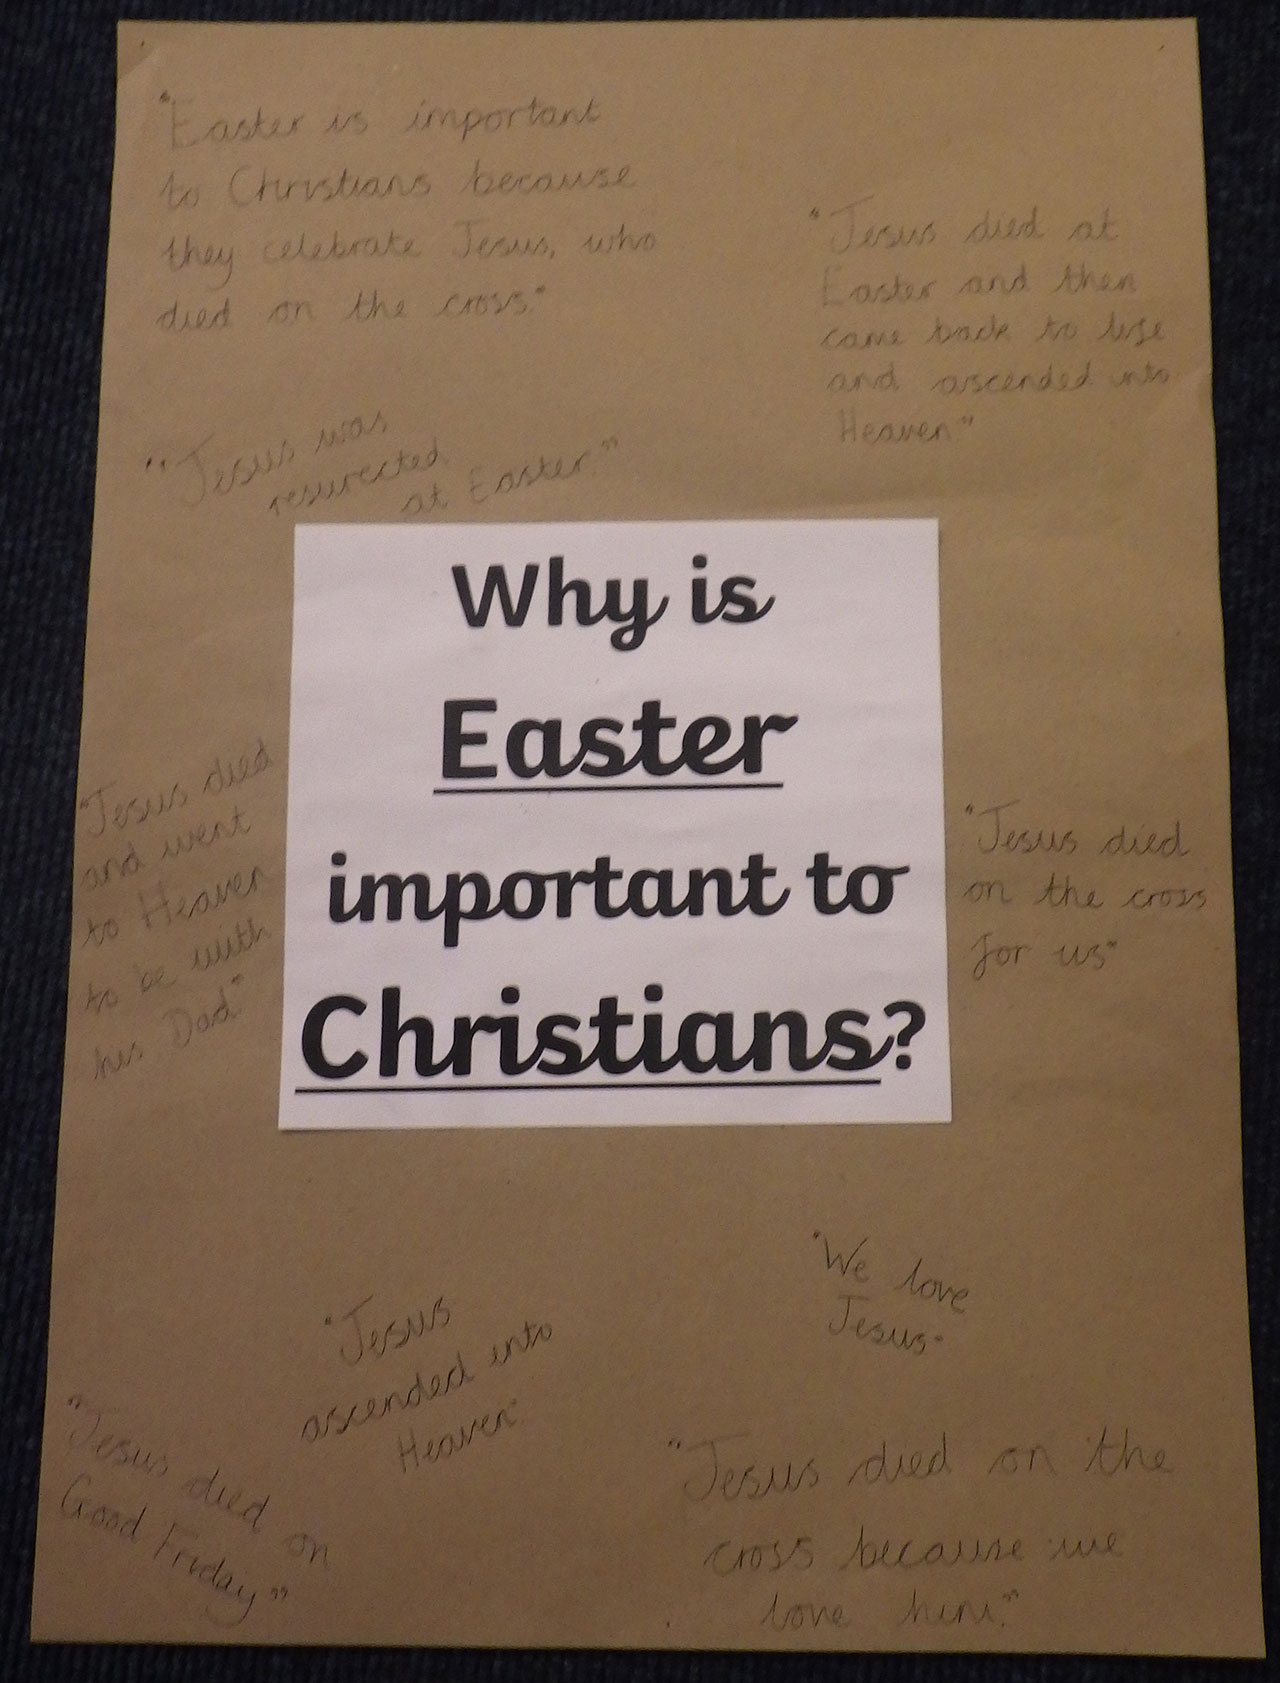 "Easter is important
to Christians because
they celebrate Jesus, who
died on the cross."
"Jesus died at
Easter and then
came back to life
and ascended into
Heaven."
"Jesus was
resurected
at Easter."
Why is
Easter
important to
Christians?
"Jesus died
and went
to Heaven
to be with
his Dad"
"Jesus died
on the cross
for us"
"We love
Jesus"
"Jesus
ascended into
Heaven"
"Jesus died on
Good Friday"
"Jesus died on the
cross because we
love him."